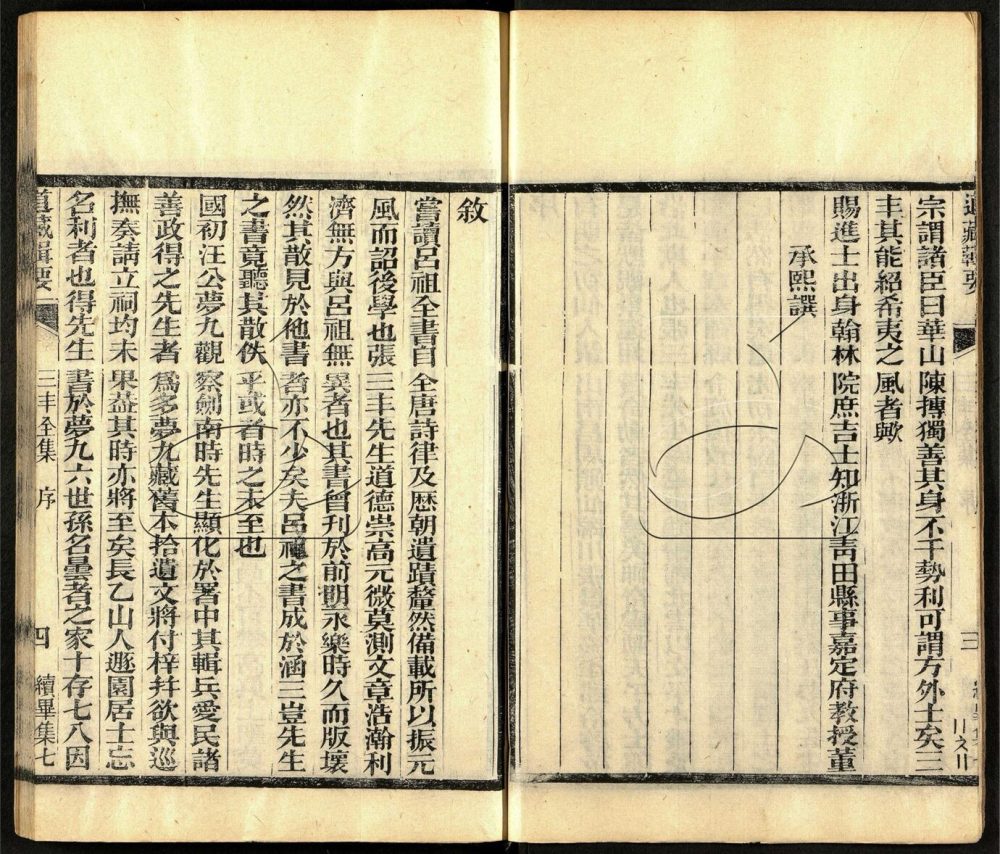 道藏輯要
三
宗謂諸臣曰華山陳摶獨善其身不干勢利可謂方外士矣三
丰其能紹希夷之風者歟
賜進士出身翰林院庶吉士知浙江青田縣事嘉定府教授董
承熙譔
敘
嘗讀呂祖全書自全唐詩律及歷朝遺蹟釐然備載所以振元
風而詔後學也張三丰先生道德崇高元微莫測文章浩瀚利
濟無方與呂祖無異者也其書曾刊於前明永樂時久而版壞
然其散見於他書者亦不少矣夫呂祖之書成於涵三豈先生
之書竟聽其散佚乎或者時之未至也
國初汪公夢九觀察劍南時先生顯化於署中其輯兵愛民諸
善政得之先生者為多夢九藏舊本拾遺文將付梓幷欲與巡
撫奏請立祠均未果葢其時亦將至矣長乙山人遯園居士忘
名利者也得先生書於夢九六世孫名曇者之家十存七八因
道藏輯要
三丰全集
序
四
續畢集七